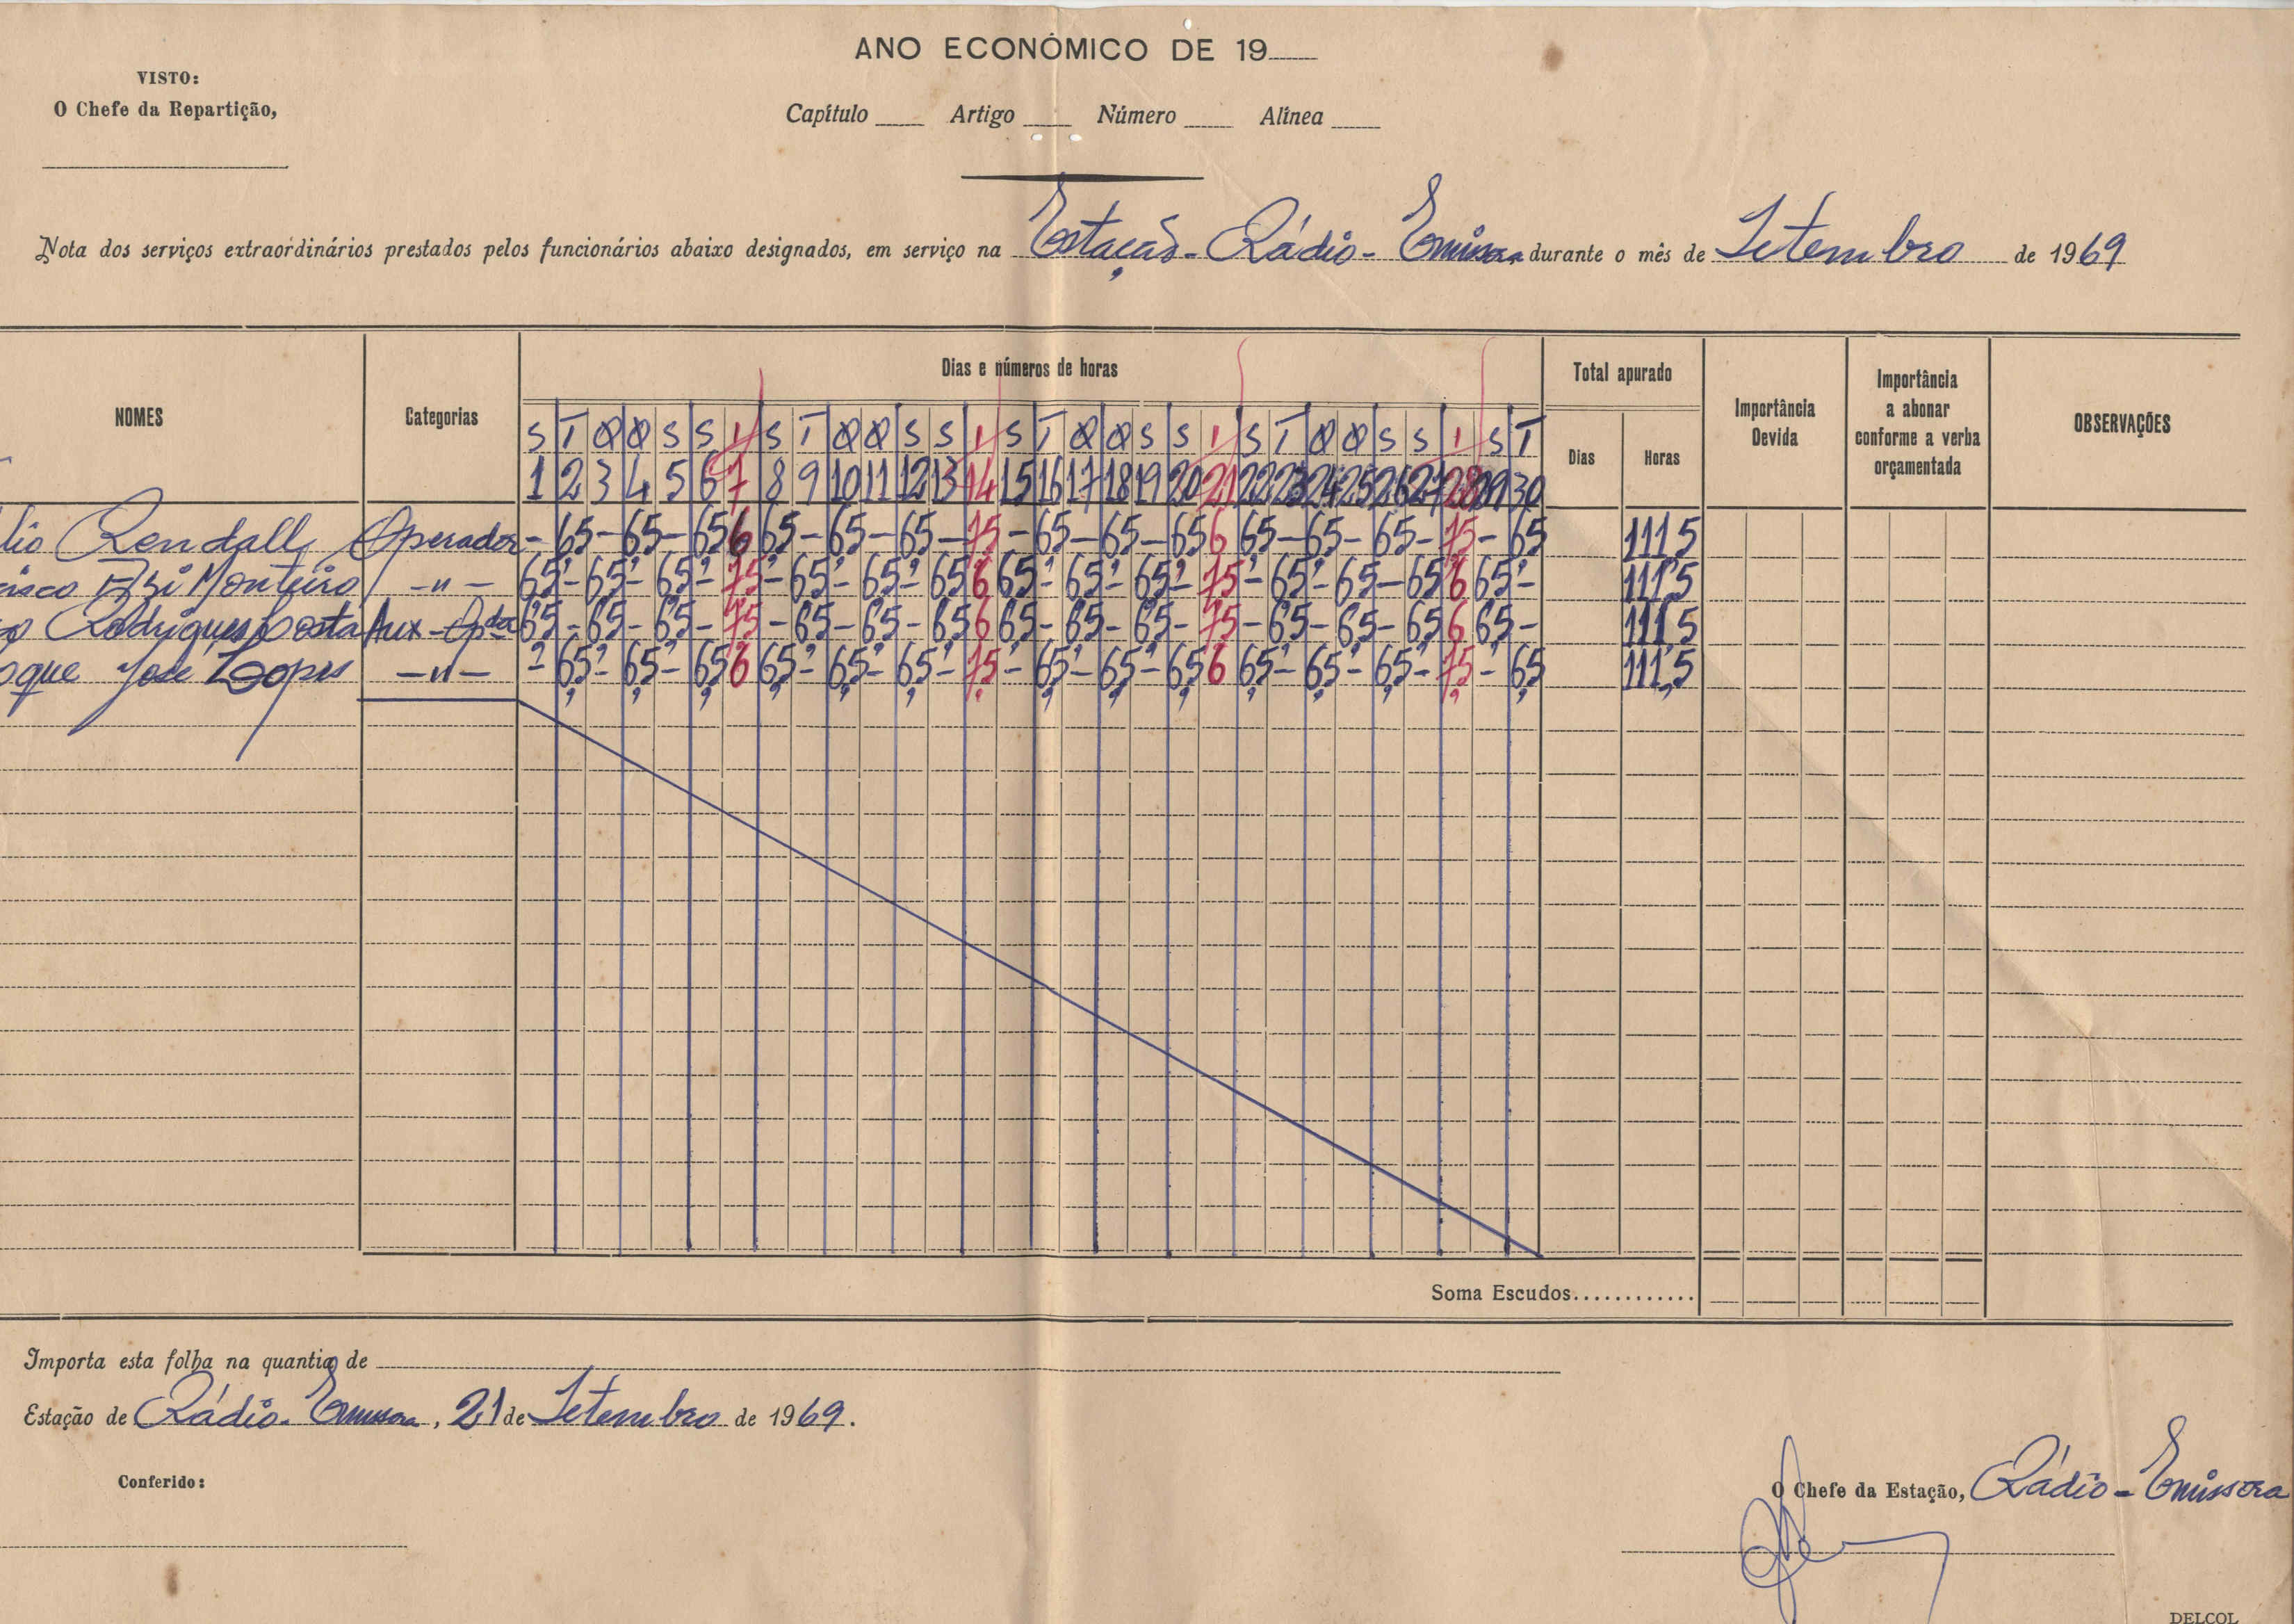 ANO ECONÓMICO DE 19
VISTO:
O Chefe da Repartição,
Capítulo Artigo Número Alínea
Nota dos serviços extraordinários prestados pelos funcionários abaixo designados, em serviço na Estação-Rádio-Emissora durante o mês de Setembro de 1969
NOMES Categorias Dias e números de horas Total apurado Importância Devida Importância a abonar conforme a verba orçamentada OBSERVAÇÕES
Dias Horas
S T Q Q S S S T Q Q S S S T Q Q S S S T Q Q S S S T
1 2 3 4 5 6 7 8 9 10 11 12 13 14 15 16 17 18 19 20 21 22 23 24 25 26 27 28 29 30
lio Rendall Operador - 65 - 65 - 65 6 65 - 65 - 65 - 75 - 65 - 65 - 65 6 65 - 65 - 65 - 75 - 65 111 5
isco Monteiro -"- 65 - 65 - 65 - 75 - 65 - 65 - 65 6 65 - 65 - 65 - 75 - 65 - 65 - 65 6 65 - 111,5
Rodrigues Costa Aux-Opdor 65 - 65 - 65 - 75 - 65 - 65 - 65 6 65 - 65 - 65 - 75 - 65 - 65 - 65 6 65 - 111 5
oque José Lopes -"- - 6,5 - 6,5 - 6,5 6 6,5 - 6,5 - 6,5 - 7,5 - 6,5 - 6,5 - 6,5 6 6,5 - 6,5 - 6,5 - 7,5 - 6,5 111,5
Soma Escudos............
Importa esta folha na quantia de
Estação de Rádio-Emissora, 21 de Setembro de 1969.
Conferido:
O Chefe da Estação, Rádio-Emissora
DELCOL